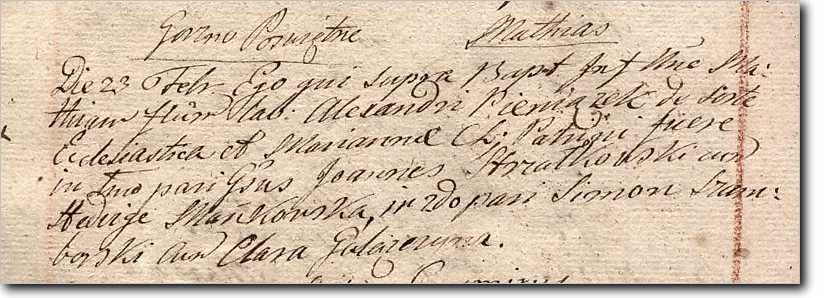 Gorzno Poswiętne Mathias
Die 23 Febr. Ego qui supra Bapt Inf Nne Ma-
thiam filium Lab: Alexandri Pieniązek de sorte
Ecclesiastica et Mariannæ C.L. Patrini fuere
in 1mo pari Gsus Joannes Strzałkowski cum
Hedvige Mankowska, in 2do pari Simon Szam-
borski cum Clara